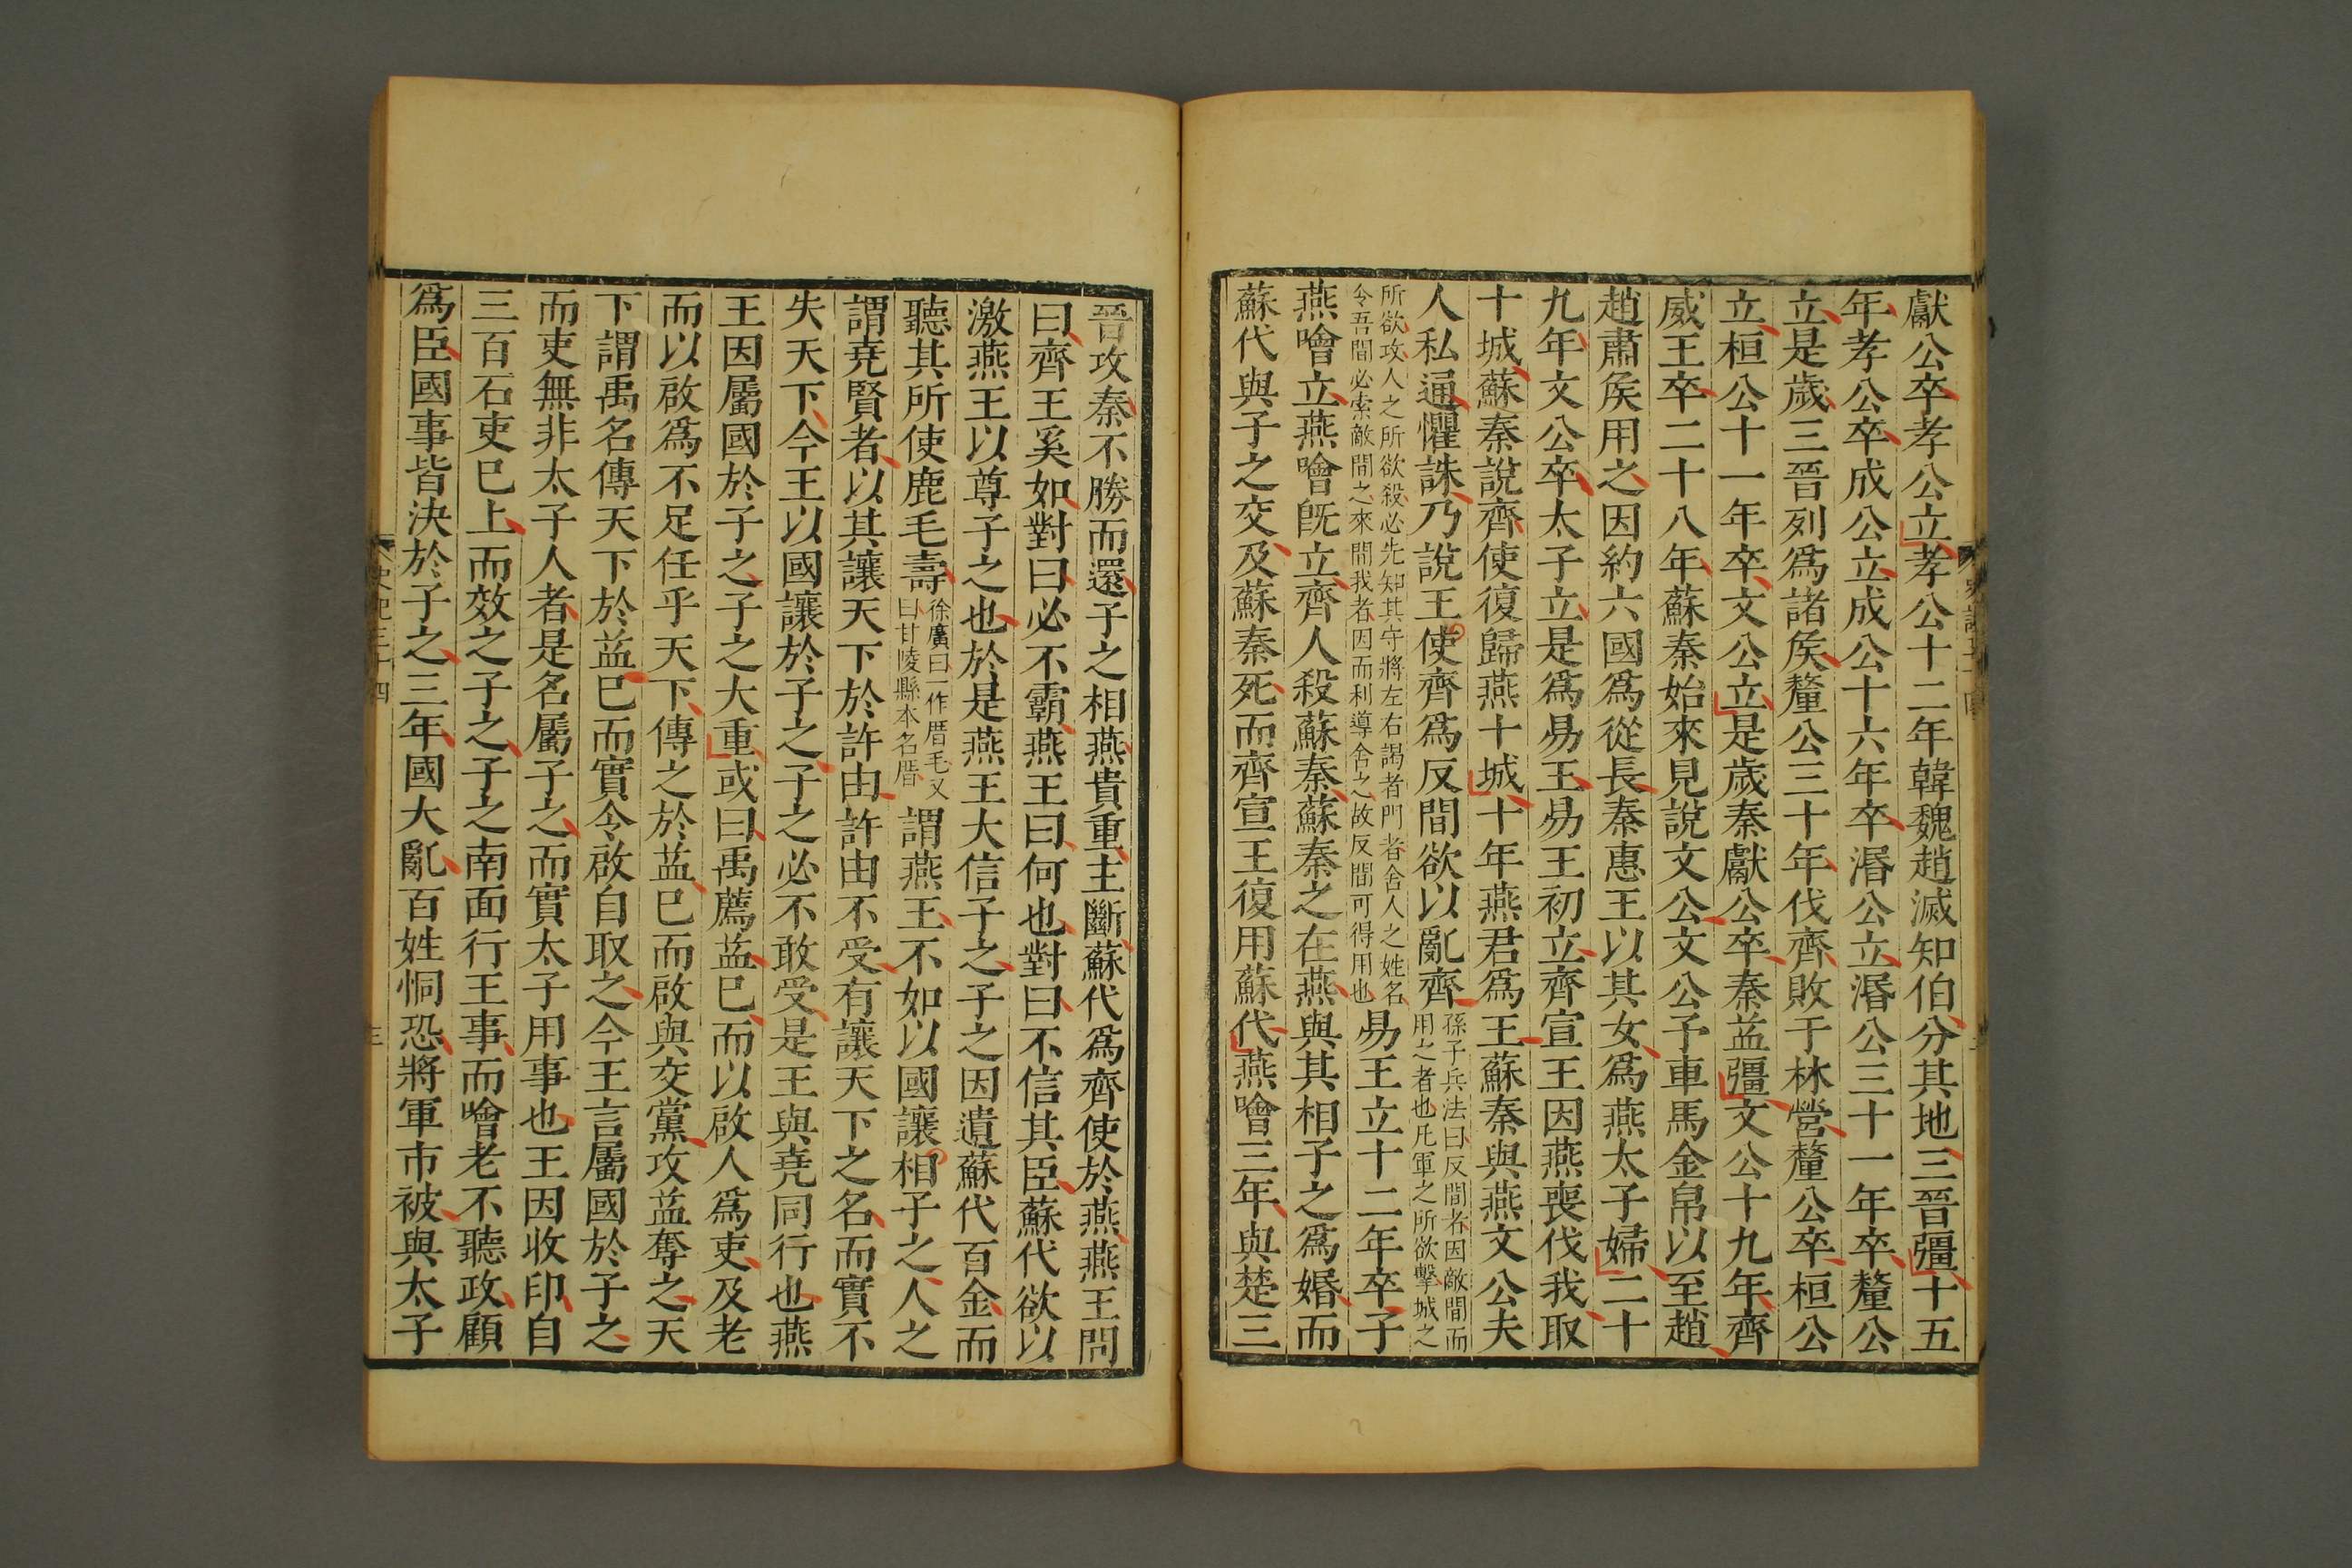 獻公卒孝公立孝公十二年韓魏趙滅知伯分其地三晉彊十五
年孝公卒成公立成公十六年卒湣公立湣公三十一年卒釐公
立是歲三晉列爲諸矦釐公三十年伐齊敗于林營釐公卒桓公
立桓公十一年卒文公立是歲秦獻公卒秦益彊文公十九年齊
威王卒二十八年蘇秦始來見說文公文公予車馬金帛以至趙
趙肅矦用之因約六國爲從長秦惠王以其女爲燕太子婦二十
九年文公卒太子立是爲易王易王初立齊宣王因燕喪伐我取
十城蘇秦說齊使復歸燕十城十年燕君爲王蘇秦與燕文公夫
人私通懼誅乃說王使齊爲反間欲以亂齊
孫子兵法曰反間者因敵間而
用之者也凡軍之所欲擊城之
所欲攻人之所欲殺必先知其守將左右謁者門者舍人之姓名
令吾間必索敵間之來間我者因而利導舍之故反間可得用也
易王立十二年卒子
燕噲立燕噲既立齊人殺蘇秦蘇秦之在燕與其相子之爲婚而
蘇代與子之交及蘇秦死而齊宣王復用蘇代燕噲三年與楚三
晉攻秦不勝而還子之相燕貴重主斷蘇代爲齊使於燕燕王問
曰齊王奚如對曰必不霸燕王曰何也對曰不信其臣蘇代欲以
激燕王以尊子之也於是燕王大信子之子之因遺蘇代百金而
聽其所使鹿毛壽
徐廣曰一作厝毛又
曰甘陵縣本名厝
謂燕王不如以國讓相子之人之
謂堯賢者以其讓天下於許由許由不受有讓天下之名而實不
失天下今王以國讓於子之子之必不敢受是王與堯同行也燕
王因屬國於子之子之大重或曰禹薦益已而以啟人爲吏及老
而以啟爲不足任乎天下傳之於益已而啟與交黨攻益奪之天
下謂禹名傳天下於益已而實令啟自取之今王言屬國於子之
而吏無非太子人者是名屬子之而實太子用事也王因收印自
三百石吏已上而效之子之子之南面行王事而噲老不聽政顧
爲臣國事皆決於子之三年國大亂百姓恫恐將軍市被與太子
史記三十四
三